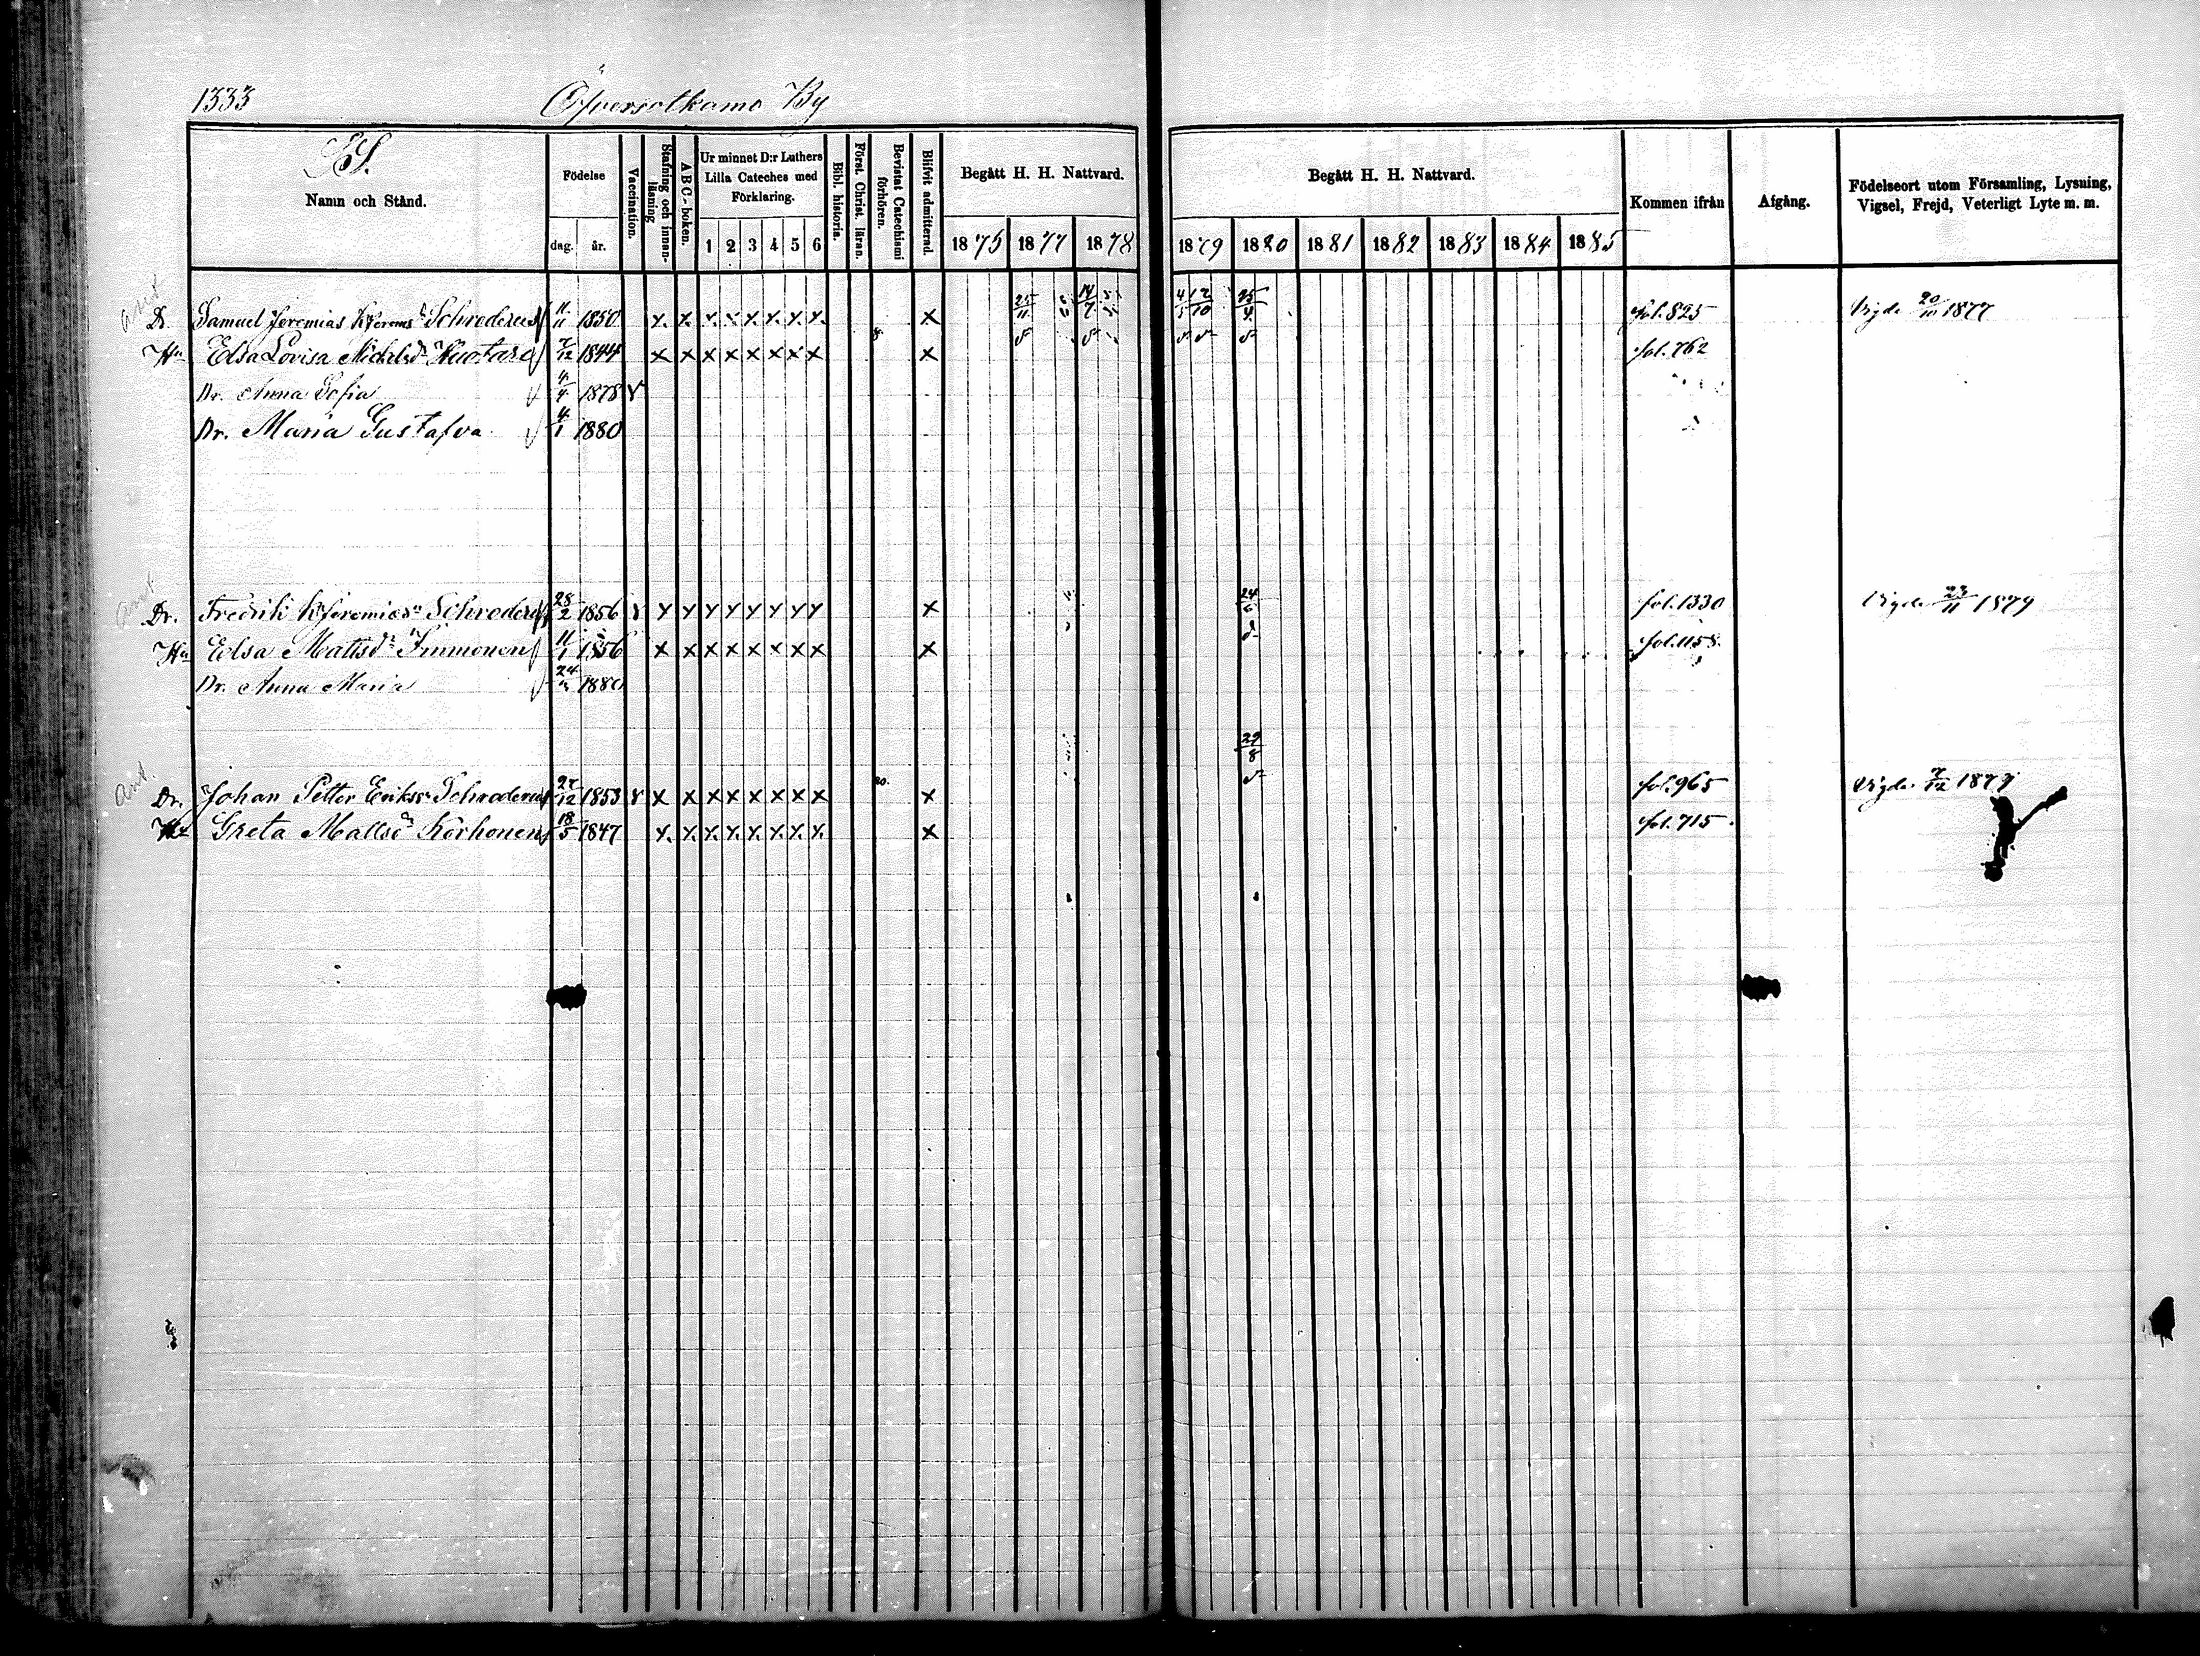 1333 Öfversotkamo By
ES.
Namn och Stånd.
Födelse
dag. år.
Vaccination.
Stafning och innan-läsning
ABC-boken.
Ur minnet D:r Luthers Lilla Cateches med Förklaring.
1 2 3 4 5 6
Bibl. historia.
Först. Christ. läran.
Bevistat Catechismi förhören.
Blifvit admitterad.
Begått H. H. Nattvard.
1875 1877 1878
Begått H. H. Nattvard.
1879 1880 1881 1882 1883 1884 1885
Kommen ifrån
Afgång.
Födelseort utom Församling, Lysning, Vigsel, Frejd, Veterligt Lyte m. m.
Dr. Samuel Jeremias Schroderus 11/11 1850 x x x x x x x x x 25/11 14/7 4/5 12/10 25/4 fol. 825 Vigde 20/10 1877
Hu Elsa Lovisa Michelsdr 7/12 1844 x x x x x x x x x fol. 762
Dr. Anna Sofia 4/4 1878 v
Dr. Maria Gustafva 4/1 1880
Dr. Fredrik Jeremiass Schroderus 28/2 1856 x x x x x x x x x 24/6 fol. 1330 Vigde 23/11 1879
Hu Elsa Mattsdr Timmonen 11/1 1856 x x x x x x x x x fol. 1158.
Dr. Anna Maria 24 1880
29/8
Dr. Johan Petter Erikss Schroderus 27/12 1853 x x x x x x x x x fol. 965 Vigde 7/12 1879
Hu Greta Mattsdr Korhonen 18/5 1847 x x x x x x x x x fol. 715